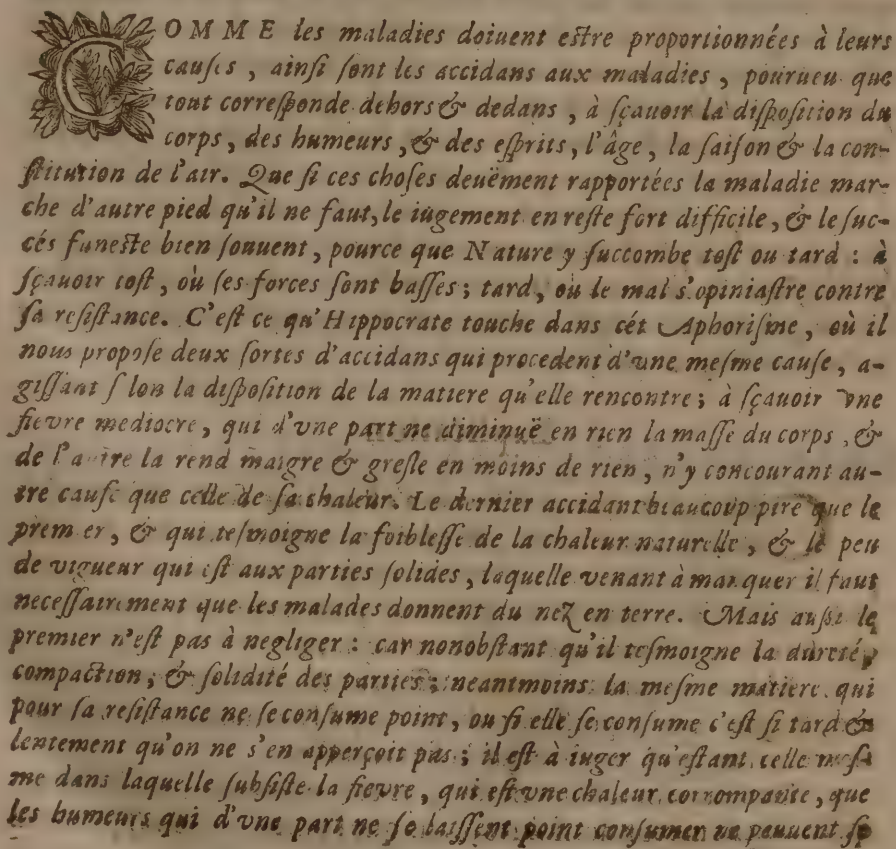 COMME les maladies doiuent estre proportionnées à leurs
causes, ainsi sont les accidans aux maladies, pourueu que
tout corresponde dehors & dedans, à sçauoir la disposition du
corps, des humeurs, & des esprits, l'âge, la saison & la con-
stitution de l'air. Que si ces choses deuëment rapportées la maladie mar-
che d'autre pied qu'il ne faut, le iugement en reste fort difficile, & le suc-
cés funeste bien souuent, pource que Nature y succombe tost ou tard : à
sçauoir tost, où ses forces sont basses ; tard, où le mal s'opiniastre contre
sa resistance. C'est ce qu'Hippocrate touche dans cét Aphorisme, où il
nous propose deux sortes d'accidans qui procedent d'vne mesme cause, a-
gissant selon la disposition de la matiere qu'elle rencontre ; à sçauoir vne
fievre mediocre, qui d'vne part ne diminuë en rien la masse du corps, &
de l'autre la rend maigre & gresle en moins de rien, n'y concourant au-
tre cause que celle de sa chaleur. Le dernier accidant beaucoup pire que le
premier, & qui tesmoigne la foiblesse de la chaleur naturelle, & le peu
de vigueur qui est aux parties solides, laquelle venant à manquer il faut
necessairement que les malades donnent du nez en terre. Mais aussi le
premier n'est pas à negliger : car nonobstant qu'il tesmoigne la dureté,
compaction, & solidité des parties ; neantmoins la mesme matiere qui
pour sa resistance ne se consume point, ou si elle se consume c'est si tard &
lentement qu'on ne s'en apperçoit pas ; il est à iuger qu'estant celle mes-
me dans laquelle subsiste la fievre, qui est vne chaleur corrompante, que
les humeurs qui d'vne part ne se laissent point consumer ne peuuent se